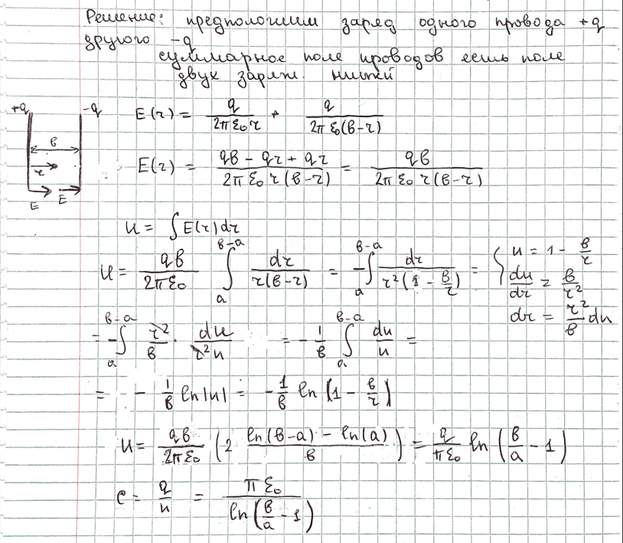 Решение: предположим заряд одного провода +q
другого -q
суммарное поле проводов есть поле
двух заряж. нитей
+q -q
в
r
E E
E(r) = q / 2πε₀r + q / 2πε₀(в-r)
E(r) = (qв - qr + qr) / 2πε₀ r(в-r) = qв / 2πε₀ r(в-r)
u = ∫E(r)dr
u = qв / 2πε₀ ∫ₐ^(в-a) dr / r(в-r) = -∫ₐ^(в-a) dr / r²(1 - в/r) = { u = 1 - в/r
du/dr = в/r²
dr = r²/в du
= -∫ₐ^(в-a) r²/в · du / r²u = -1/в ∫ₐ^(в-a) du/u =
= - 1/в ln|u| = -1/в ln(1 - в/r)
u = qв / 2πε₀ (2 (ln(в-a) - ln(a)) / в) = q / πε₀ ln(в/a - 1)
c = q/u = πε₀ / ln(в/a - 1)